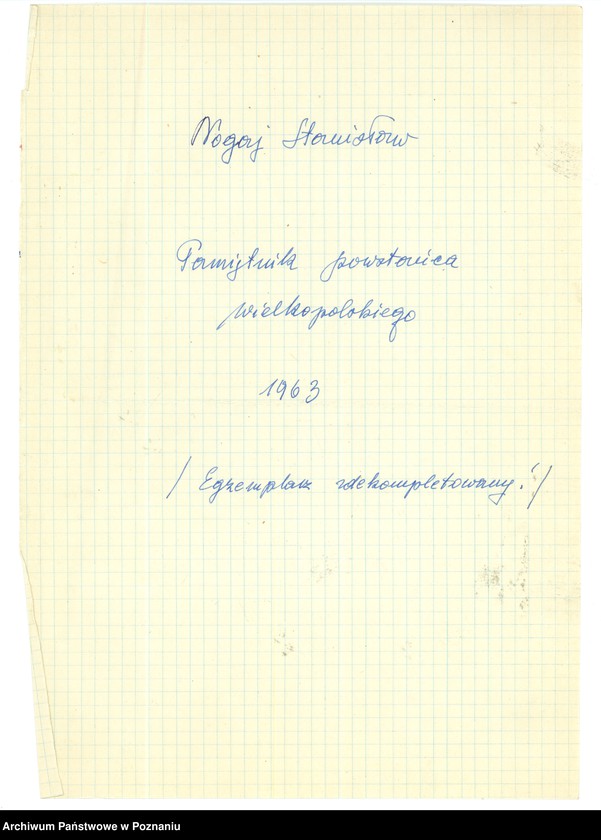 Nogaj Stanisław
Pamiętnik powstańca
wielkopolskiego
1963
/ Egzemplarz zdekompletowany! /
Archiwum Państwowe w Poznaniu